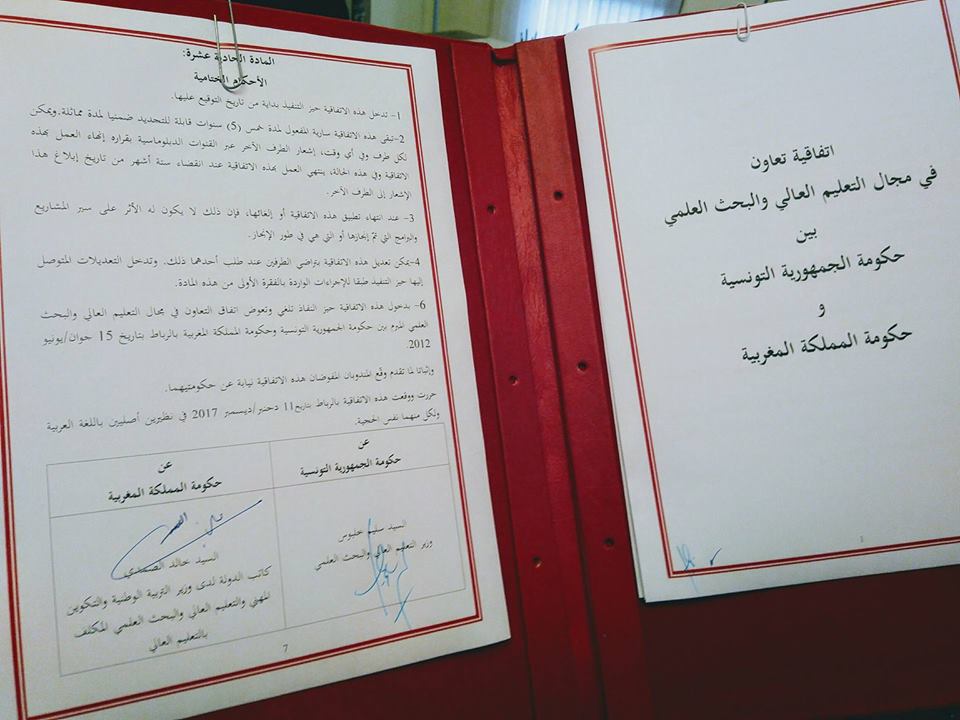 اتفاقية تعاون
في مجال التعليم العالي والبحث العلمي
بين
حكومة الجمهورية التونسية
و
حكومة المملكة المغربية
1
المادة الحادية عشرة:
الأحكام الختامية
1- تدخل هذه الاتفاقية حيز التنفيذ بداية من تاريخ التوقيع عليها.
2-تبقى هذه الاتفاقية سارية المفعول لمدة خمس (5) سنوات قابلة للتجديد ضمنيا لمدة مماثلة.ويمكن
لكل طرف وفي أي وقت، إشعار الطرف الآخر عبر القنوات الدبلوماسية بقراره إنهاء العمل بهذه
الاتفاقية وفي هذه الحالة، ينتهي العمل بهذه الاتفاقية عند انقضاء ستة أشهر من تاريخ إبلاغ هذا
الإشعار إلى الطرف الآخر.
3- عند انتهاء تطبيق هذه الاتفاقية أو إلغائها، فإن ذلك لا يكون له الأثر على سير المشاريع
والبرامج التي تمّ إنجازها أو التي هي في طور الإنجاز.
4-يمكن تعديل هذه الاتفاقية بتراضي الطرفين عند طلب أحدهما ذلك. وتدخل التعديلات المتوصل
إليها حيز التنفيذ طبقا للإجراءات الواردة بالفقرة الأولى من هذه المادة.
6- بدخول هذه الاتفاقية حيز النفاذ تلغي وتعوض اتفاق التعاون في مجال التعليم العالي والبحث
العلمي المبرم بين حكومة الجمهورية التونسية وحكومة المملكة المغربية بالرباط بتاريخ 15 جوان/يونيو
2012.
وإثباتا لما تقدم وقّع المندوبان المفوضان هذه الاتفاقية نيابة عن حكومتيهما.
حررت ووقعت هذه الاتفاقية بالرباط بتاريخ11 دجنبر/ديسمبر 2017 في نظيرين أصليين باللغة العربية
ولكل منهما نفس الحجية.
عن
حكومة الجمهورية التونسية
السيد سليم خلبوس
وزير التعليم العالي والبحث العلمي
عن
حكومة المملكة المغربية
السيد خالد الصمدي
كاتب الدولة لدى وزير التربية الوطنية والتكوين
المهني والتعليم العالي والبحث العلمي المكلف
بالتعليم العالي
7